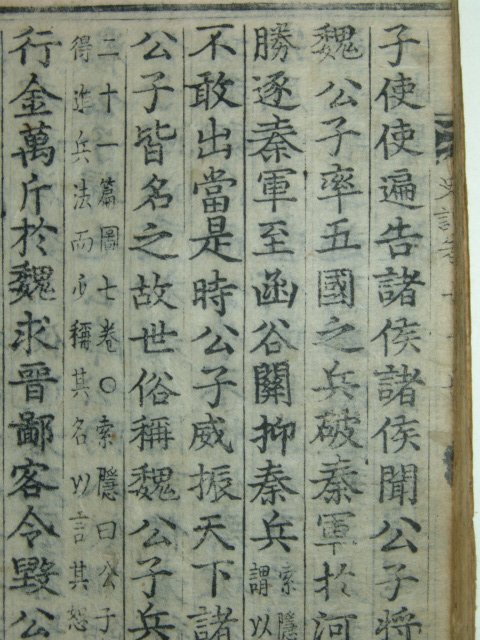 子使使遍告諸侯諸侯聞公子將
魏公子率五國之兵破秦軍於河
勝逐秦軍至函谷關抑秦兵索隱
謂以
不敢出當是時公子威振天下諸
公子皆名之故世俗稱魏公子兵
二十一篇圖七卷○索隱曰公子
得進兵法而必稱其名以言其恕
行金萬斤於魏求晉鄙客令毀公
史記卷